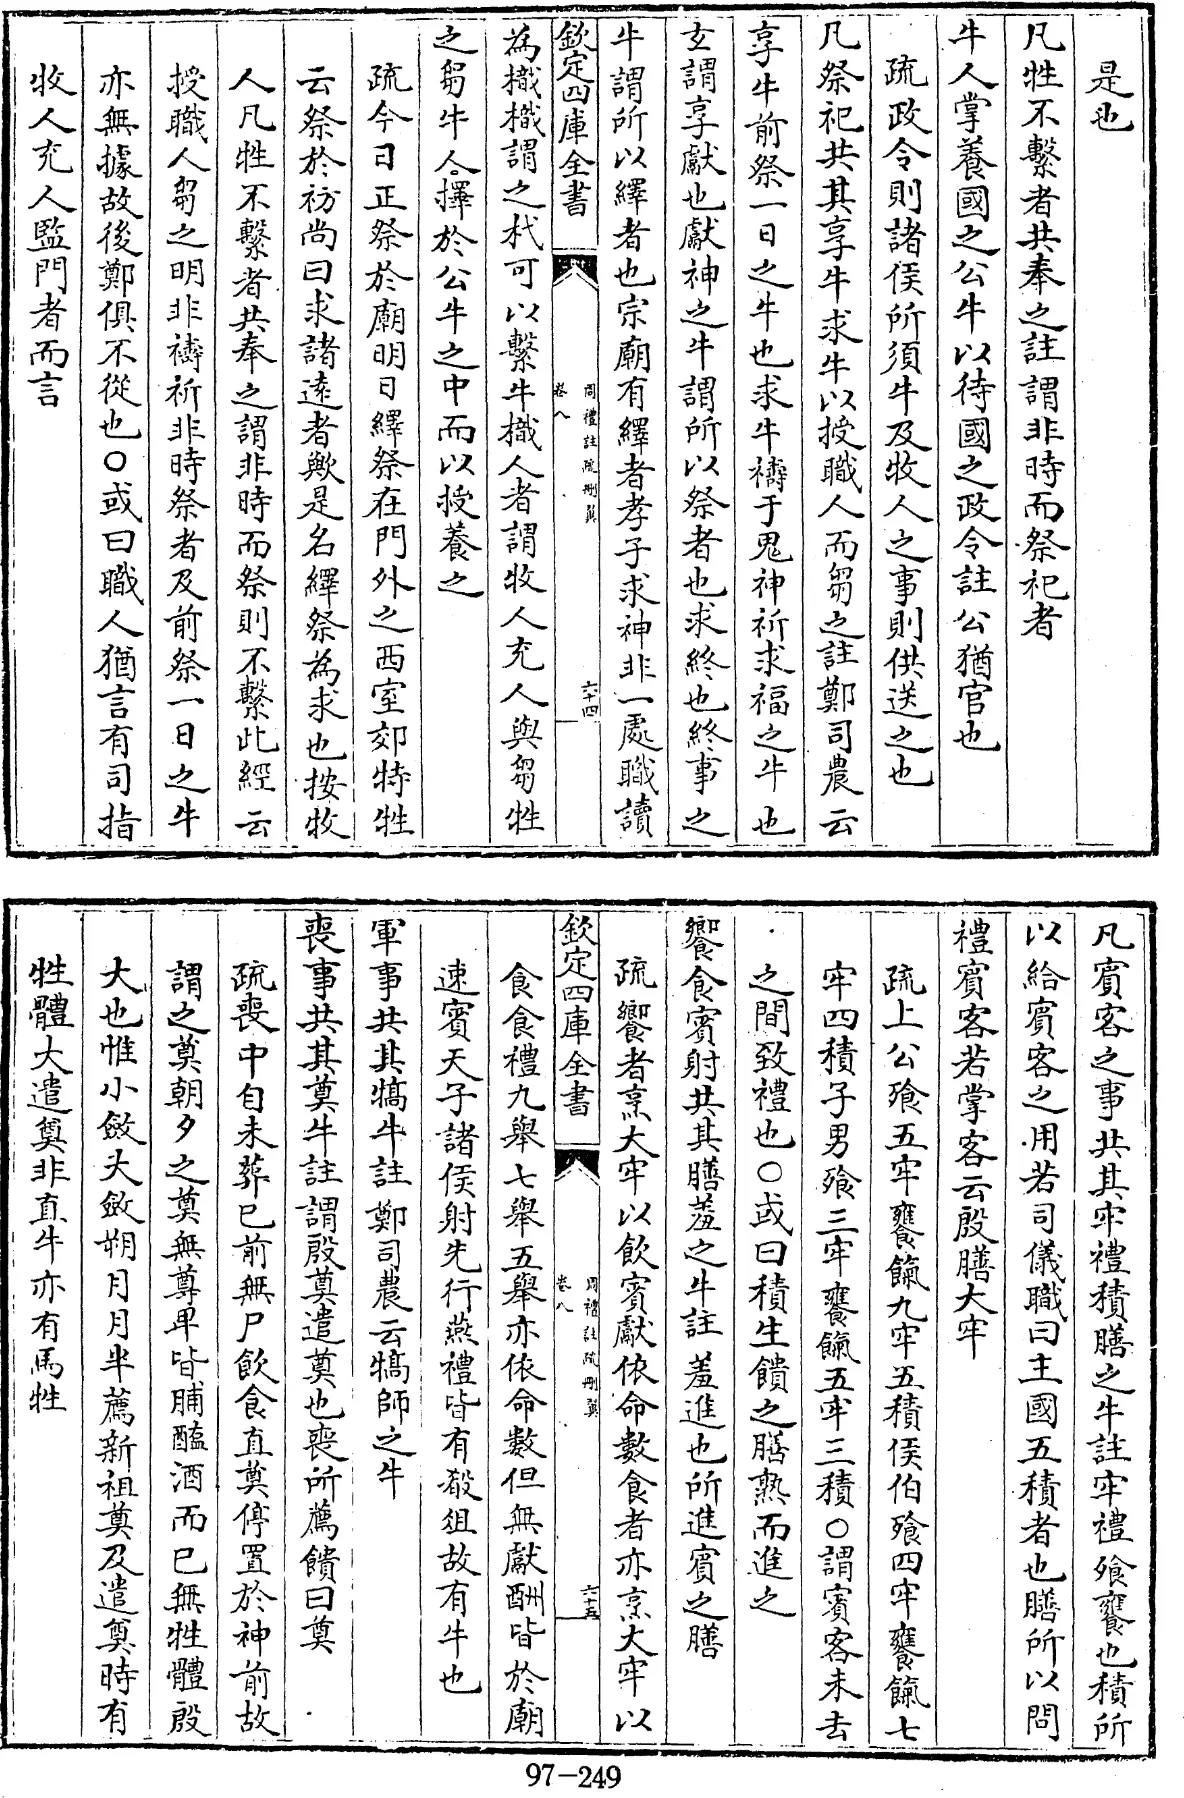 是也
凡牲不繫者共奉之註謂非時而祭祀者
牛人掌養國之公牛以待國之政令註公猶官也
疏政令則諸侯所須牛及牧人之事則供送之也
凡祭祀共其享牛求牛以授職人而芻之註鄭司農云
享牛前祭一日之牛也求牛禱于鬼神祈求福之牛也
玄謂享獻也獻神之牛謂所以祭者也求終也終事之
牛謂所以繹者也宗廟有繹者孝子求神非一處職讀
欽定四庫全書
周禮註疏刪翼
卷八
六十四
為樴樴謂之杙可以繫牛樴人者謂牧人充人與芻牲
之芻牛人擇於公牛之中而以授養之
疏今日正祭於廟明日繹祭在門外之西室郊特牲
云祭於祊尚曰求諸遠者歟是名繹祭為求也按牧
人凡牲不繫者共奉之謂非時而祭則不繫此經云
授職人芻之明非禱祈非時祭者及前祭一日之牛
亦無據故後鄭俱不從也○或曰職人猶言有司指
牧人充人監門者而言
凡賓客之事共其牢禮積膳之牛註牢禮飱饔也積所
以給賓客之用若司儀職曰主國五積者也膳所以問
禮賓客若掌客云殷膳大牢
疏上公飱五牢饔餼九牢五積侯伯飱四牢饔餼七
牢四積子男飱三牢饔餼五牢三積○謂賓客未去
之間致禮也○或曰積生饋之膳熟而進之
饗食賓射共其膳羞之牛註羞進也所進賓之膳
疏饗者烹大牢以飲賓獻依命數食者亦烹大牢以
欽定四庫全書
周禮註疏刪翼
卷八
六十五
食食禮九舉七舉五舉亦依命數但無獻酬皆於廟
速賓天子諸侯射先行燕禮皆有殽俎故有牛也
軍事共其犒牛註鄭司農云犒師之牛
喪事共其奠牛註謂殷奠遣奠也喪所薦饋曰奠
疏喪中自未葬已前無尸飲食直奠停置於神前故
謂之奠朝夕之奠無尊卑皆脯醢酒而已無牲體殷
大也惟小斂大斂朔月月半薦新祖奠及遣奠時有
牲體大遣奠非直牛亦有馬牲
97-249